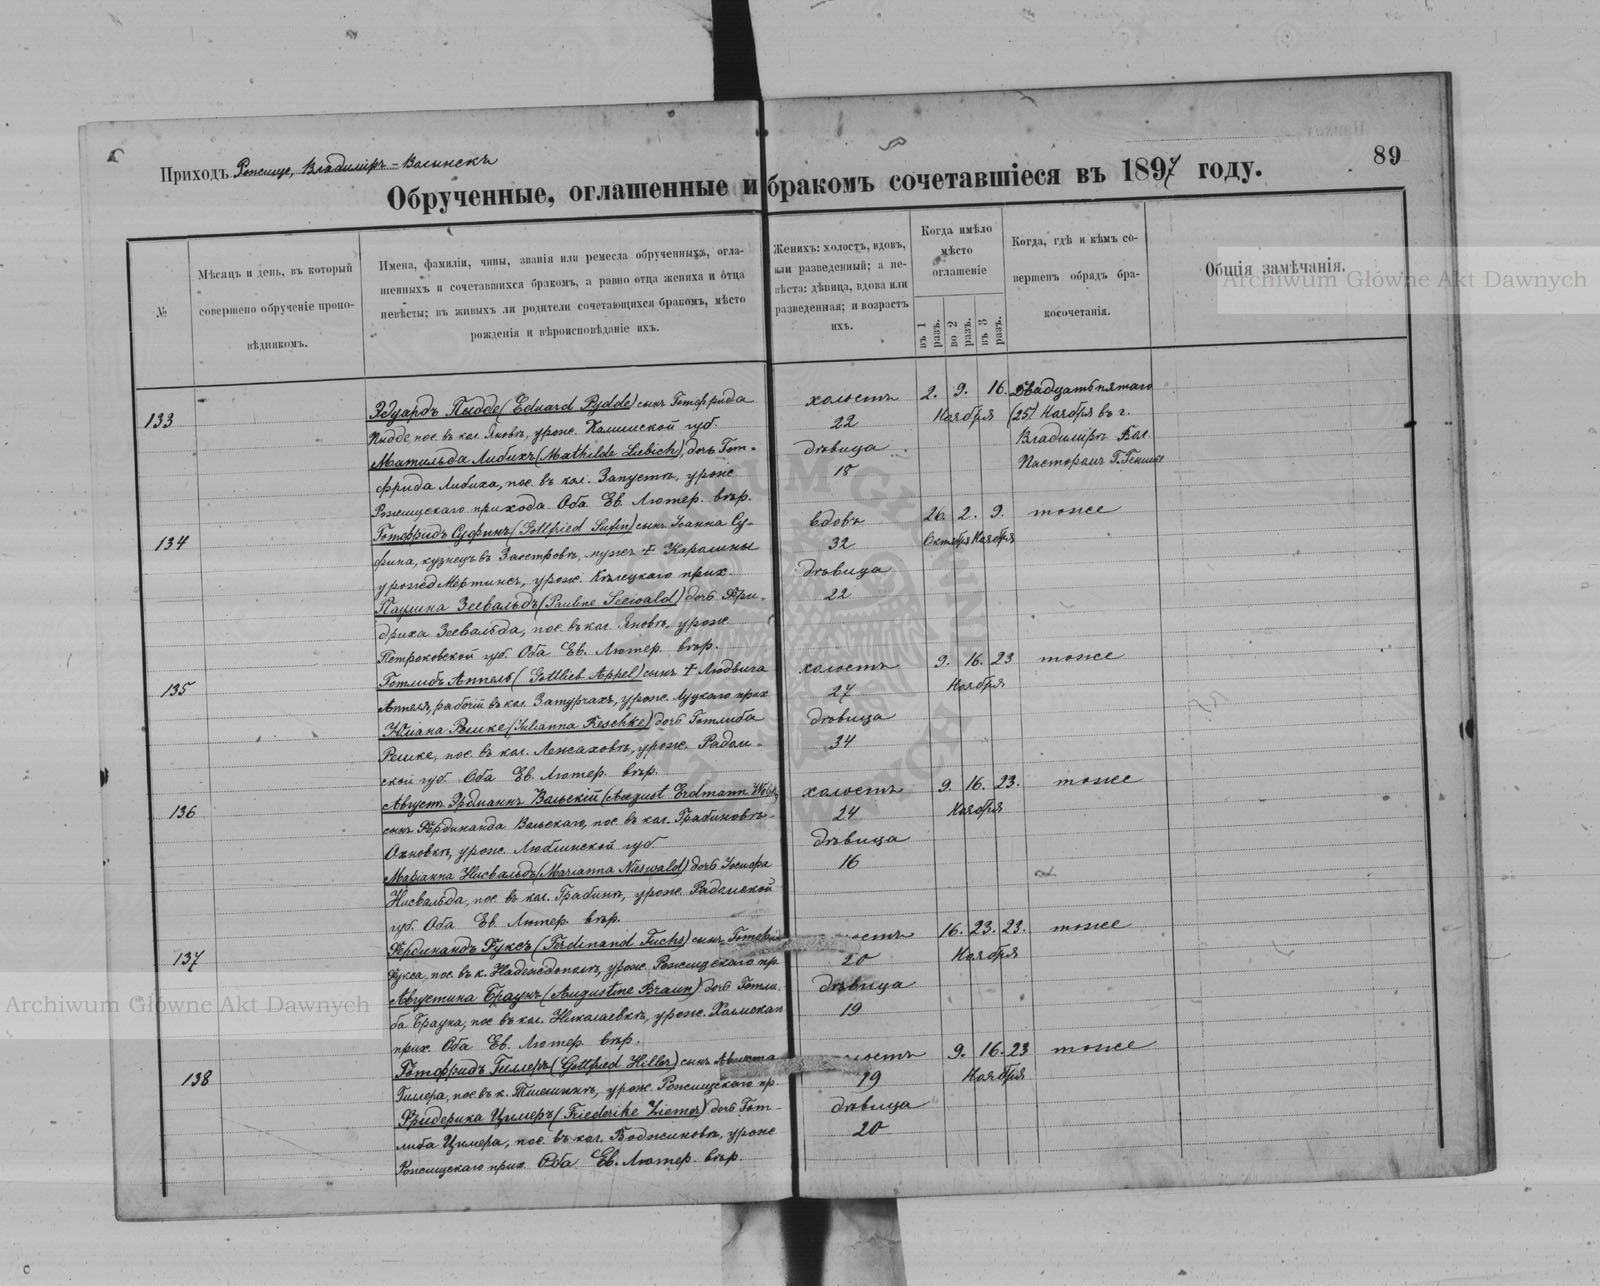 Приходъ Рожище, Владиміръ-Волынскъ
89
Обрученные, оглашенные и бракомъ сочетавшіеся въ 1897 году.
№
Мѣсяцъ и день, въ который
совершено обрученіе пропо-
вѣдникомъ.
Имена, фамиліи, чины, званія или ремесла обрученныхъ, огла-
шенныхъ и сочетавшихся бракомъ, а равно отца жениха и отца
невѣсты; въ живыхъ ли родители сочетающихся бракомъ, мѣсто
рожденія и вѣроисповѣданіе ихъ.
Женихъ: холостъ, вдовъ,
или разведенный; а не-
вѣста: дѣвица, вдова или
разведенная; и возрастъ
ихъ.
Когда имѣло
мѣсто
оглашеніе
въ 1 разъ.
во 2 разъ.
въ 3 разъ.
Когда, гдѣ и кѣмъ со-
вершенъ обрядъ бра-
косочетанія.
Общія замѣчанія.
Archiwum Główne Akt Dawnych
133
Эдуардъ Пыдде (Eduard Pydde) сынъ Готфрида
Пыдде, пос. въ кол. Яновкѣ, урож. Калишской губ.
Матильда Либихъ (Mathilde Liebich), дочь Гот-
фрида Либиха, пос. въ кол. Запустѣ, урож.
Рожищскаго прихода. Оба Ев. Лютер. вѣр.
холостъ
22
дѣвица
18
2. 9. 16.
Ноября
Двадцать пятаго
(25) Ноября въ г.
Владимірѣ Вол.
Пасторомъ Г.
134
Готфридъ Суфинъ (Gottfried Sufin) сынъ Іоанна Су-
фина, кузнецъ въ Заостровкѣ, мужъ + Каролины
урожд. Мертинсъ, урож. Кѣлецкаго прих.
Паулина Зеевальдъ (Pauline Seewald) дочь Фри-
дриха Зеевальда, пос. въ кол. Яновкѣ, урож.
Петроковской губ. Оба Ев. Лютер. вѣр.
вдовъ
32
дѣвица
22
26. 2. 9.
Октября Ноября
тоже
135
Готлибъ Аппель (Gottlieb Appel) сынъ + Людвига
Аппеля, рабочій въ кол. Затурцахъ, урож. Луцкаго прих
Юліана Решке (Julianna Reschke) дочь Готлиба
Решке, пос. въ кол. Лежаховѣ, урож. Радом-
ской губ. Оба Ев. Лютер. вѣр.
холостъ
27
дѣвица
34
9. 16. 23
Ноября
тоже
136
Августъ Эрдманнъ Вольскій (August Erdmann
сынъ Фердинанда Вольскаго, пос. въ кол. Грабиновкѣ-
Охновкѣ, урож. Люблинской губ.
Маріанна Нисвальдъ (Marianna Naswald) дочь Іосифа
Нисвальда, пос. въ кол. Грабинѣ, урож. Радомской
губ. Оба Ев. Лютер. вѣр.
холостъ
24
дѣвица
16
9. 16. 23.
Ноября
тоже
137
Фердинандъ Фуксъ (Ferdinand Fuchs) сынъ
Фукса, пос. въ к. Надеждополѣ, урож. Рожищскаго пр.
Августина Браунъ (Augustine Braun) дочь Готли-
ба Брауна, пос. въ кол. Николаевкѣ, урож. Холмскаго
прих. Оба Ев. Лютер. вѣр.
холостъ
20
дѣвица
19
16. 23. 23.
Ноября
тоже
Archiwum Główne Akt Dawnych
138
Готфридъ Гиллеръ (Gottfried Hiller) сынъ Августа
Гиллера, пос. въ к. урож. Рожищскаго пр.
Фридерика Цимеръ (Friederike Ziemer) дочь Гот-
либа Цимера, пос. въ кол. урож.
Рожищскаго прих. Оба Ев. Лютер. вѣр.
холостъ
19
дѣвица
20
9. 16. 23
Ноября
тоже